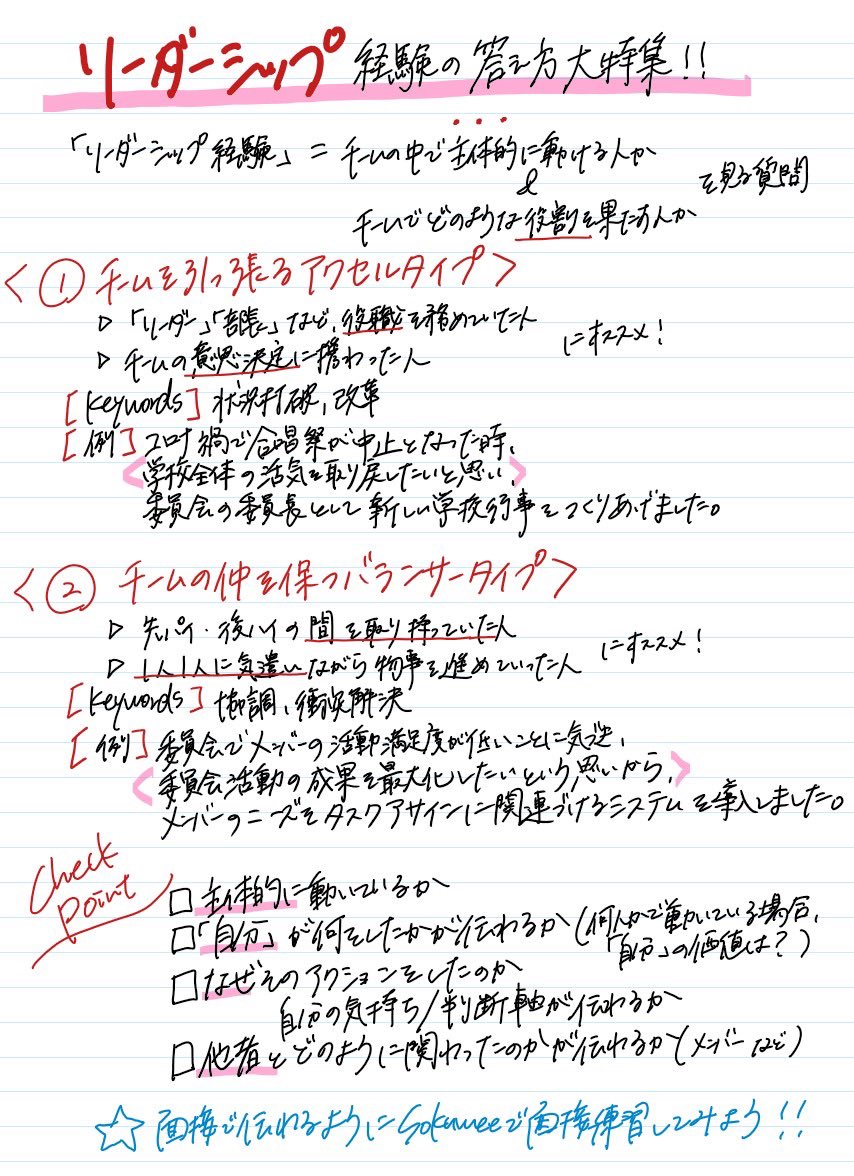 リーダーシップ経験の答え方大特集!!
「リーダーシップ経験」= チームの中で主体的に動ける人か
&
を見る質問
チームでどのような役割を果たす人か
<①チームを引っ張るアクセルタイプ>
▷「リーダー」「部長」など、役職を務めていた人
にオススメ!
▷ チームの意思決定に携わった人
[Keywords] 状況打破、改革
[例] コロナ禍で合唱祭が中止となった時、
<学校全体の活気を取り戻したいと思い、>
委員会の委員長として新しい学校行事をつくりあげました。
<② チームの仲を保つバランサータイプ>
▷ 先パイ・後ハイの間を取り持っていた人
にオススメ!
▷ 1人1人に気遣いながら物事を進めていった人
[Keywords] 協調、衝突解決
[例] 委員会でメンバーの活動満足度が低いことに気づき、
<委員会活動の成果を最大化したいという思いから、>
メンバーのニーズをタスクアサインに関連づけるシステムを導入しました。
Check
Point
□ 主体的に動いているか
□「自分」が何をしたかが伝わるか(何人かで動いている場合、
「自分」の価値は?)
□ なぜそのアクションをしたのか
自分の気持ち/判断軸が伝わるか
□ 他者とどのように関わったのかが伝わるか(メンバーなど)
☆ 面接で伝わるようにSokumeeで面接練習してみよう!!